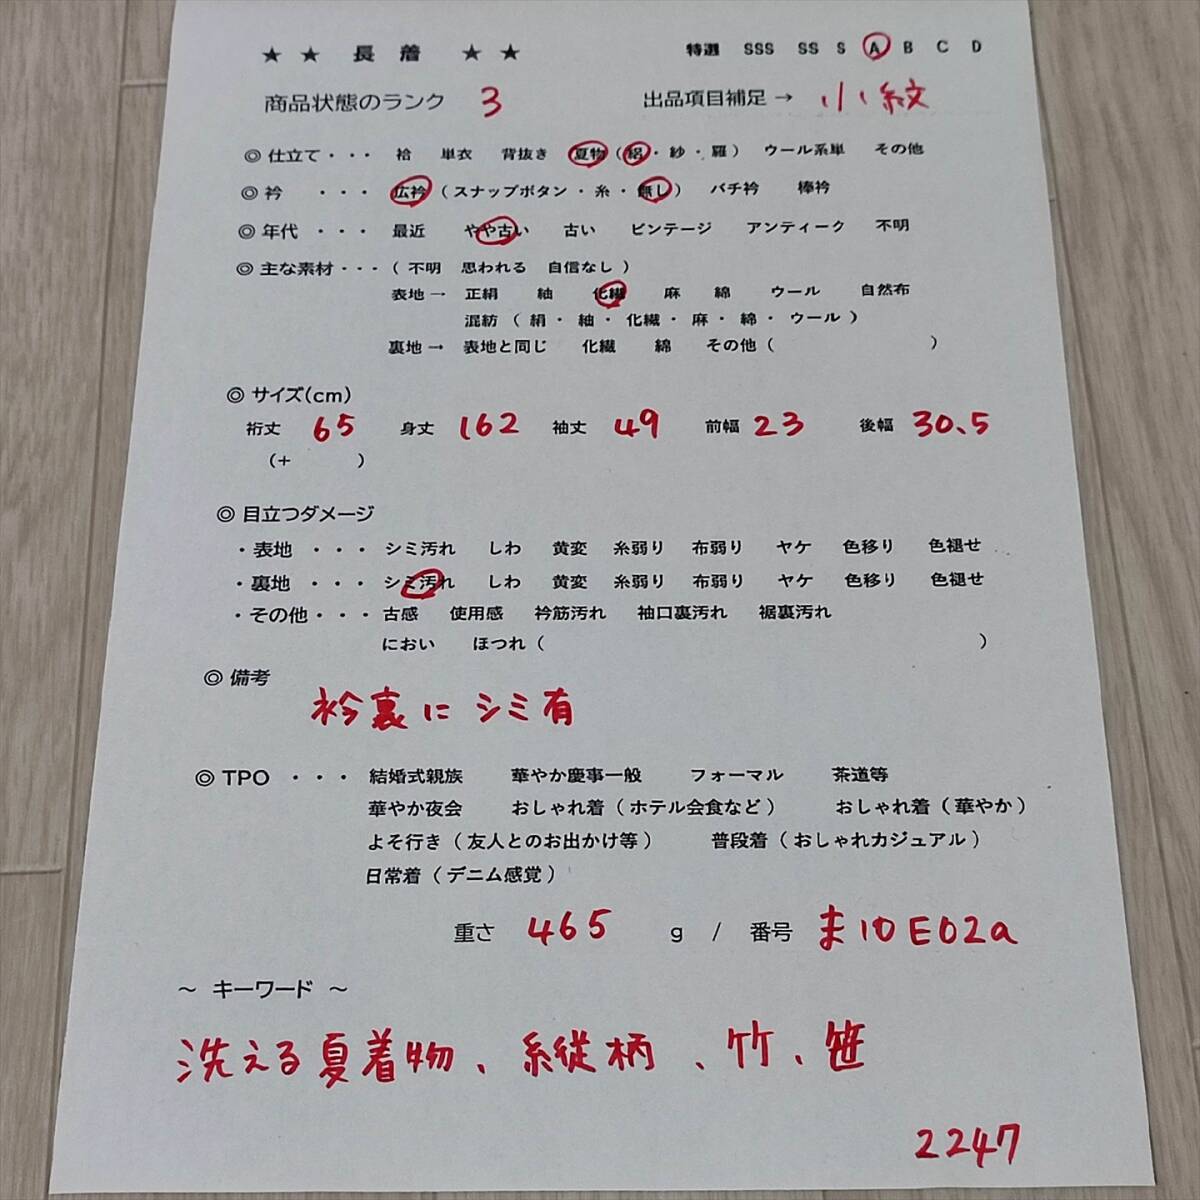 ★ ★ 長 着 ★ ★ 特選 SSS SS S A B C D
商品状態のランク 3 出品項目補足→ 小紋
◎ 仕立て・・・ 袷 単衣 背抜き 夏物(絽・紗・羅) ウール系単 その他
◎ 衿 ・・・ 広衿(スナップボタン・糸・無し) バチ衿 棒衿
◎ 年代 ・・・ 最近 やや古い 古い ビンテージ アンティーク 不明
◎ 主な素材・・・(不明 思われる 自信なし)
表地→ 正絹 紬 化繊 麻 綿 ウール 自然布
混紡(絹・紬・化繊・麻・綿・ウール)
裏地→ 表地と同じ 化繊 綿 その他( )
◎ サイズ(cm)
裄丈 65 身丈 162 袖丈 49 前幅 23 後幅 30.5
(+ )
◎ 目立つダメージ
・表地 ・・・ シミ汚れ しわ 黄変 糸弱り 布弱り ヤケ 色移り 色褪せ
・裏地 ・・・ シミ汚れ しわ 黄変 糸弱り 布弱り ヤケ 色移り 色褪せ
・その他・・・ 古感 使用感 衿筋汚れ 袖口裏汚れ 裾裏汚れ
におい ほつれ( )
◎ 備考
衿裏にシミ有
◎ TPO ・・・ 結婚式親族 華やか慶事一般 フォーマル 茶道等
華やか夜会 おしゃれ着(ホテル会食など) おしゃれ着(華やか)
よそ行き(友人とのお出かけ等) 普段着(おしゃれカジュアル)
日常着(デニム感覚)
重さ 465 g / 番号 ま10E02a
～ キーワード ～
洗える夏着物、縦柄、竹、笹
2247